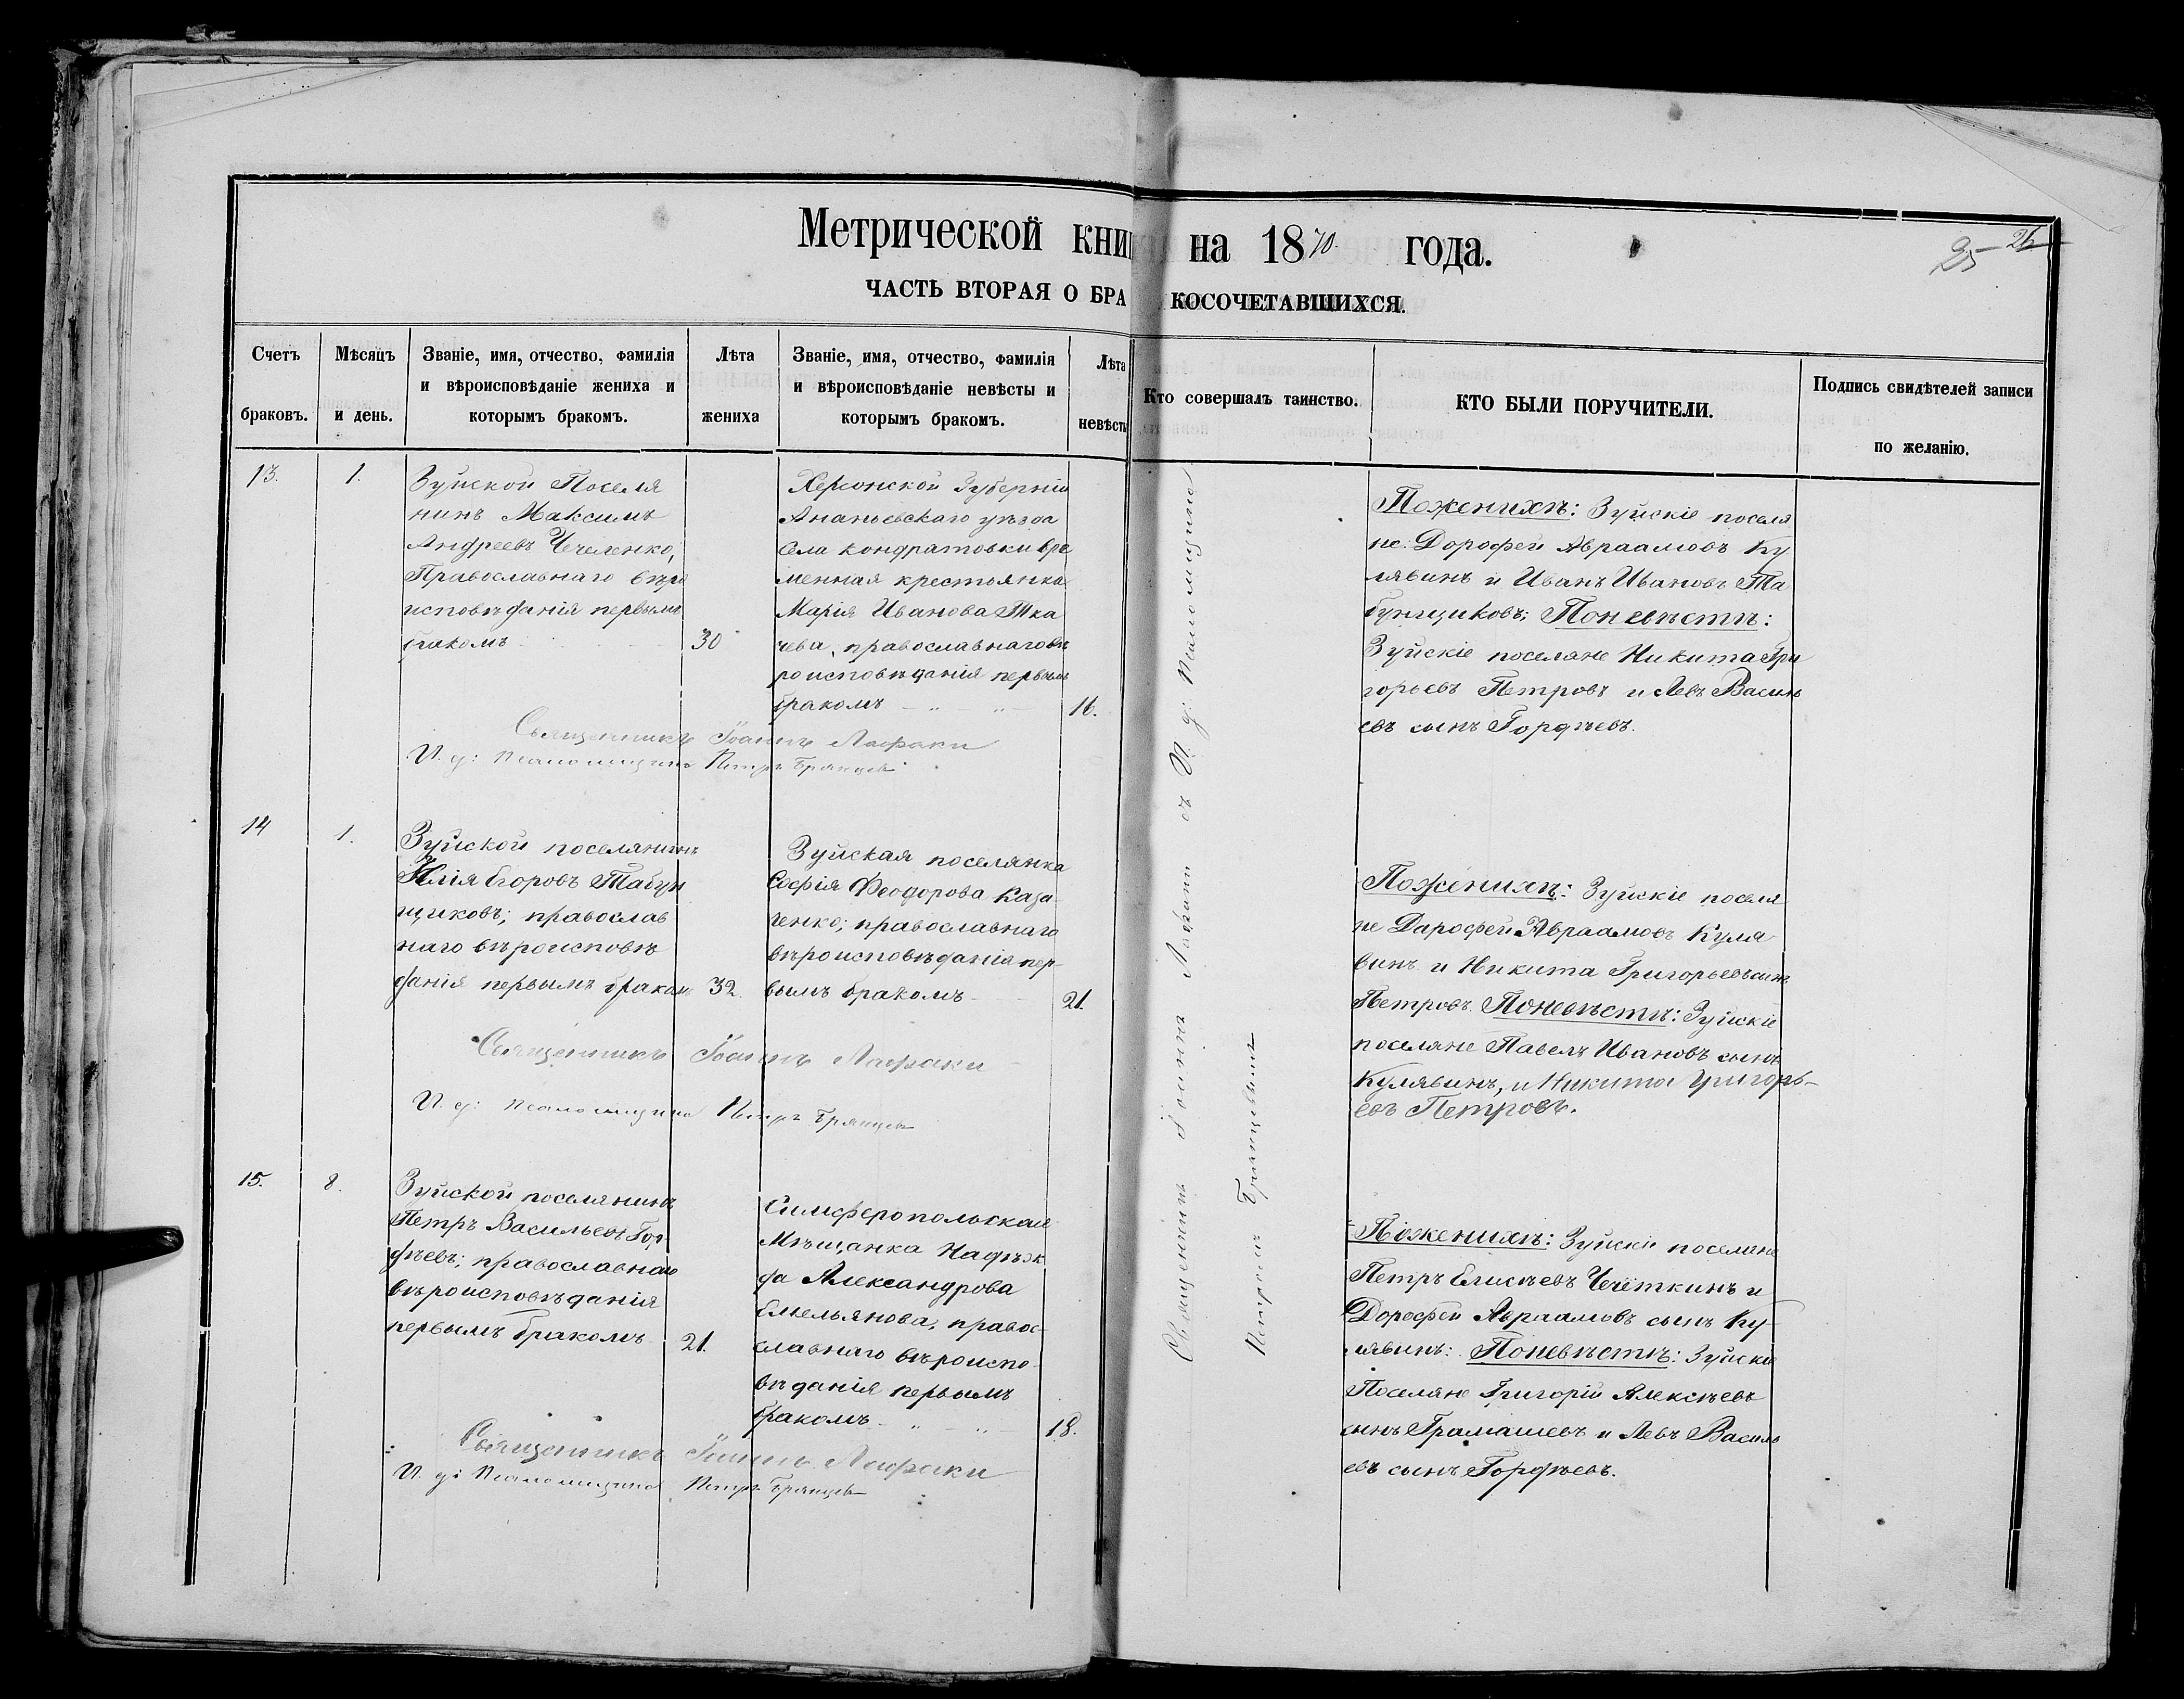 Метрической книги на 1870. года.
25 26
ЧАСТЬ ВТОРАЯ О БРАКОСОЧЕТАВШИХСЯ.
Счетъ браковъ.
Мѣсяцъ и день.
Званіе, имя, отчество, фамилія
и вѣроисповѣданіе жениха и
которымъ бракомъ.
Лѣта жениха
Званіе, имя, отчество, фамилія
и вѣроисповѣданіе невѣсты и
которымъ бракомъ.
Лѣта невѣсты
Кто совершалъ таинство.
КТО БЫЛИ ПОРУЧИТЕЛИ.
Подпись свидѣтелей записи
по желанію.
13.
1.
Зуйской Поселя
нинъ Максимъ
Андреевъ Чечеленко,
Православнаго вѣро
исповѣданія первымъ
бракомъ
30
Херсонской Губерніи
Ананьевскаго уѣзда
Села Кондратовки вре
менная крестьянка
Марія Иванова Тка
чева, православнаго вѣ
роисповѣданія первымъ
бракомъ
16.
Священникъ Іоаннъ
И. д: Псаломщика Петръ Брянцевъ
Поженихѣ: Зуйскіе поселя
не: Дорофей Авраамовъ Ку
лявинъ и Иванъ Ивановъ Та
бунщиковъ; Поневѣстѣ:
Зуйскіе поселяне Никита Гри
горьевъ Петровъ и Левъ Василь
евъ сынъ Гордѣевъ.
14
1.
Зуйской поселянинъ
Илія Егоровъ Табун
щиковъ; православ
наго вѣроисповѣ
данія первымъ бракомъ
32.
Зуйская поселянка
Софія Феодорова Каза
ченко; православнаго
вѣроисповѣданія пер-
вымъ бракомъ
21.
Священникъ Іоаннъ
И. д: Псаломщика Петръ Брянцевъ
Поженихѣ: Зуйскіе поселя
не Дарофей Авраамовъ Куля
винъ и Никита Григорьевъ сынъ
Петровъ. Поневѣстѣ: Зуйскіе
поселяне Павелъ Ивановъ сынъ
Кулявинъ, и Никита Григорь-
евъ Петровъ.
15.
8.
Зуйской поселянинъ
Петръ Васильевъ Гор
дѣевъ; православнаго
вѣроисповѣданія
первымъ бракомъ
21.
Симферопольская
Мѣщанка Надѣж
да Александрова
Емельянова, правос-
славнаго вѣроиспо-
вѣданія первымъ
бракомъ
18.
Священникъ Іоаннъ
И. д: Псаломщика Петръ Брянцевъ
Поженихѣ: Зуйскіе поселяне
Петръ Елисѣевъ Чечёткинъ и
Дорофей Авраамовъ сынъ Ку-
лявинъ: Поневѣстѣ: Зуйскіе
Поселяне Григорій Алексѣевъ
сынъ Грамашевъ и Левъ Василь
евъ сынъ Гордѣевъ.
Священникъ Іоаннъ съ И. д: Псаломщика
Петромъ Брянцевымъ